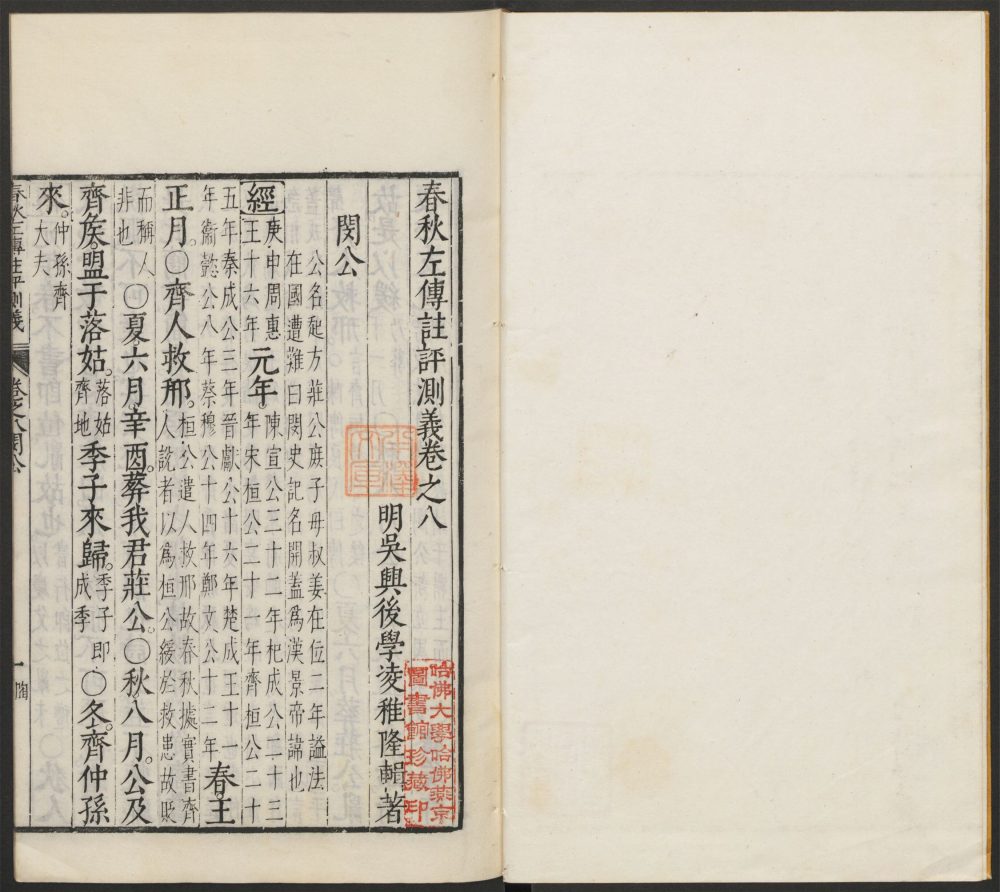 春秋左傳註評測義卷之八
明吳興後學凌稚隆輯著
閔公
公名啟方莊公庶子母叔姜在位二年謚法
在國遭難曰閔史記名開蓋爲漢景帝諱也
經
庚申周惠
王十六年
元年。
陳宣公三十二年杞成公二十三
年宋桓公二十一年齊桓公二十
五年秦成公三年晉獻公十六年楚成王十一
年衞懿公八年蔡穆公十四年鄭文公十二年
春。王
正月。○齊人救邢。
桓公遣人救邢故春秋據實書齊
人說者以爲桓公緩於救患故貶
而稱人
非也
○夏。六月。辛酉。葬我君莊公。○秋八月。公及
齊矦。盟于落姑。
落姑
齊地
季子來歸。
季子即
成季
○冬。齊仲孫
來。
仲孫齊
大夫
春秋左傳註評測義
卷之八閔公
一
哈佛大學哈佛燕京
圖書館珍藏印